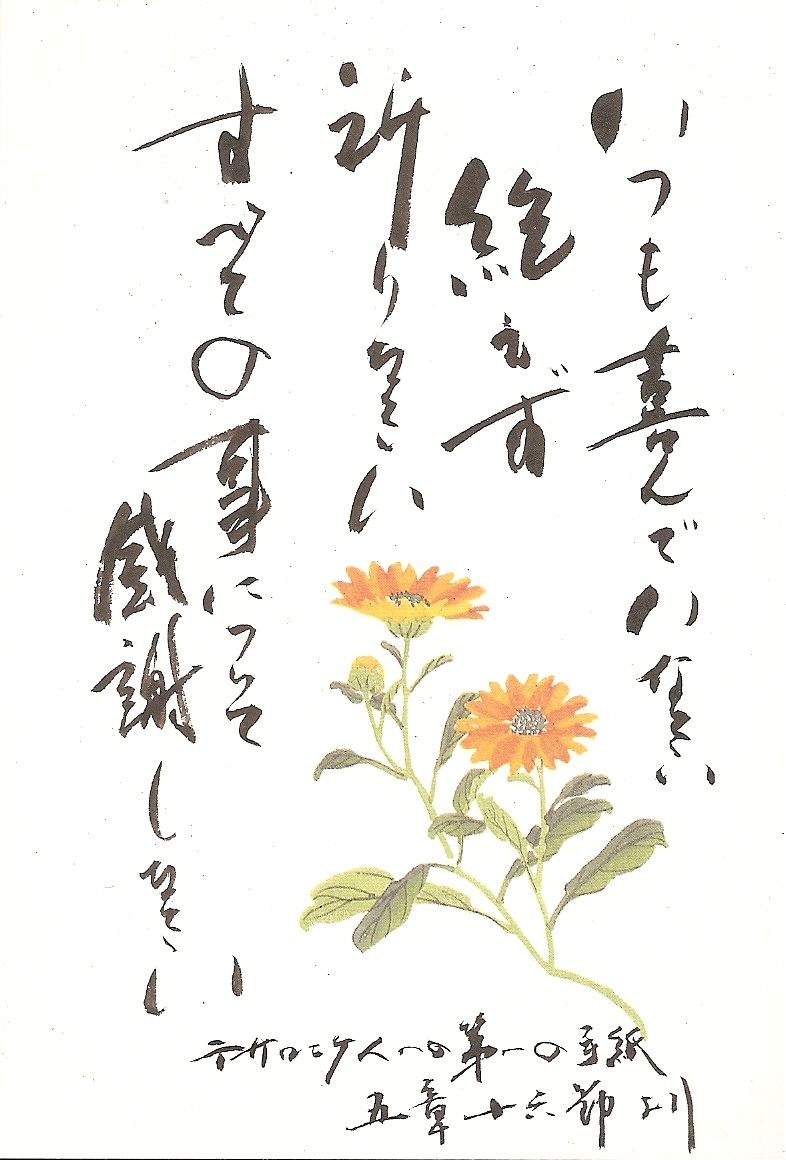 いつも喜んでいなさい
絶えず
祈りなさい
すべての事について
感謝しなさい
テサロニケ人への第一の手紙
五章十六節より